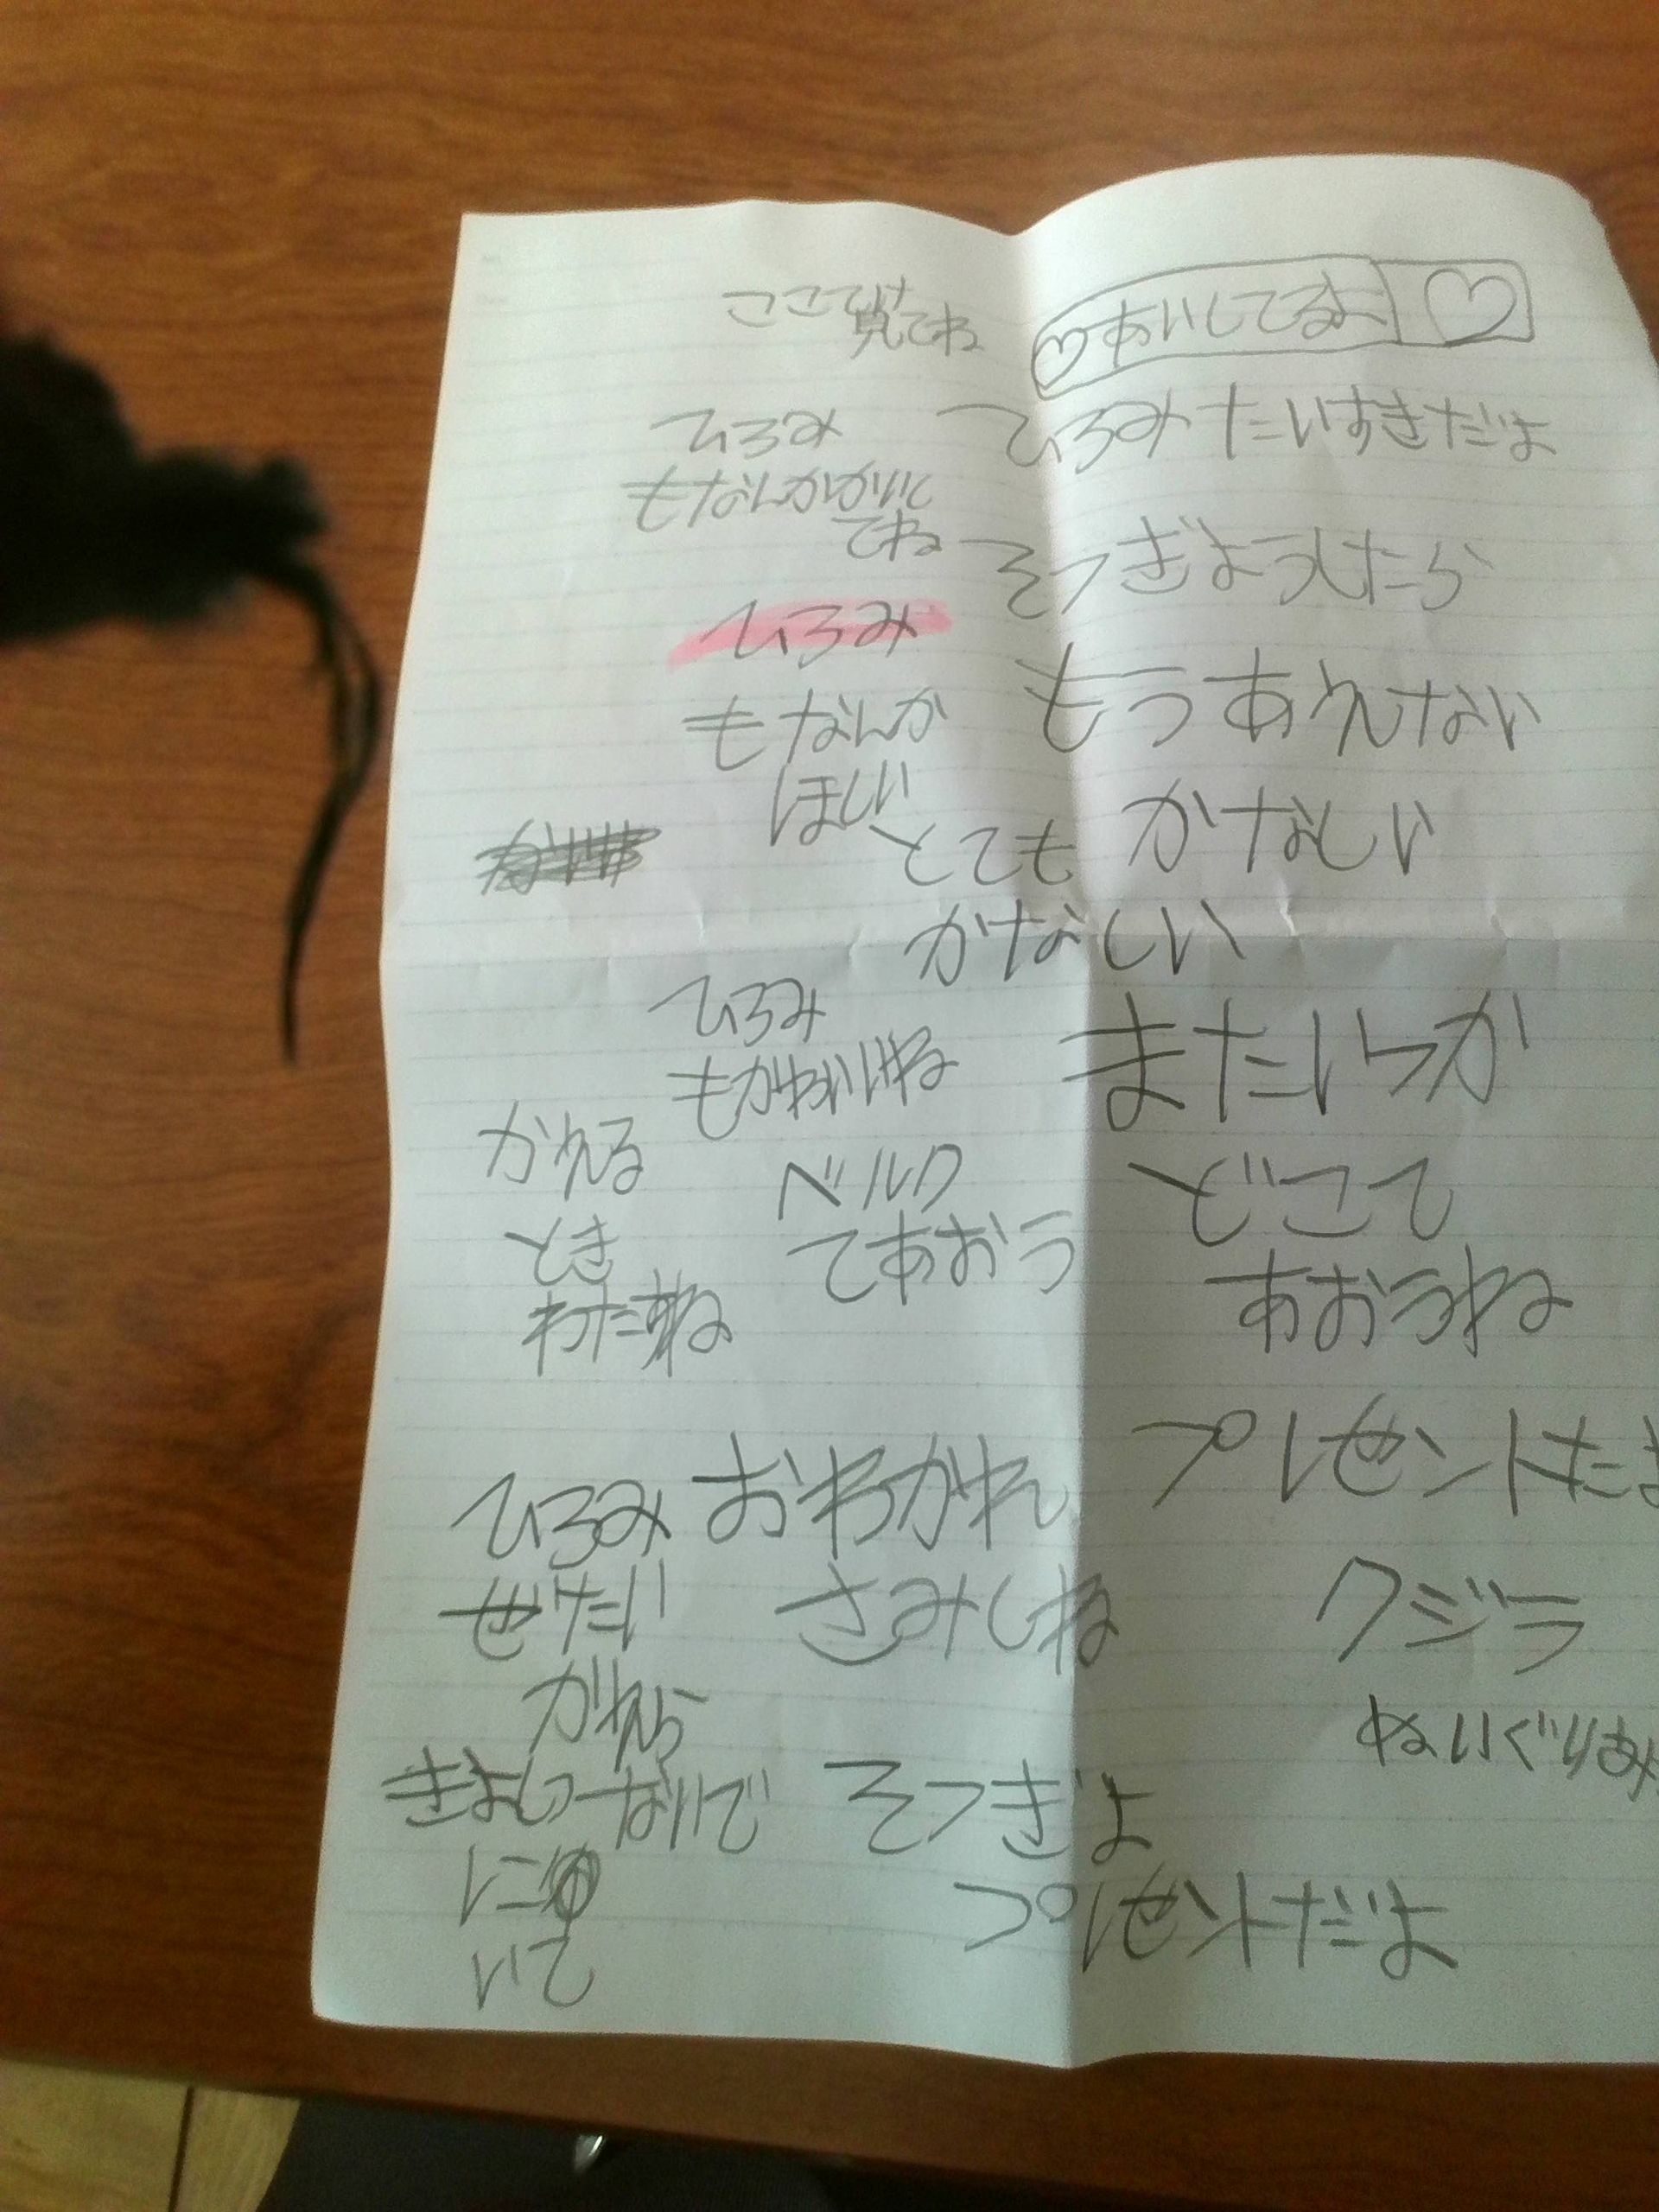 ここで
見てね
♡あいしてるよ ♡
ひろみ たいすきだよ
そつぎようしたら
もう あえない
かなしい
とても
かなしい
またいつか
どこて
あおうね
ベルク
てあおう
プレゼントだよ
クジラ
ぬいぐりみ
おわかれ
さみしね
そつぎよ
プレゼントだよ
ひろみ
もなんかかいて
てね
ひろみ
もなんか
ほしい
ひろみ
もかわいいね
かえる
とき
わたすね
ひろみ
ぜたい
がえら
ないで
いて